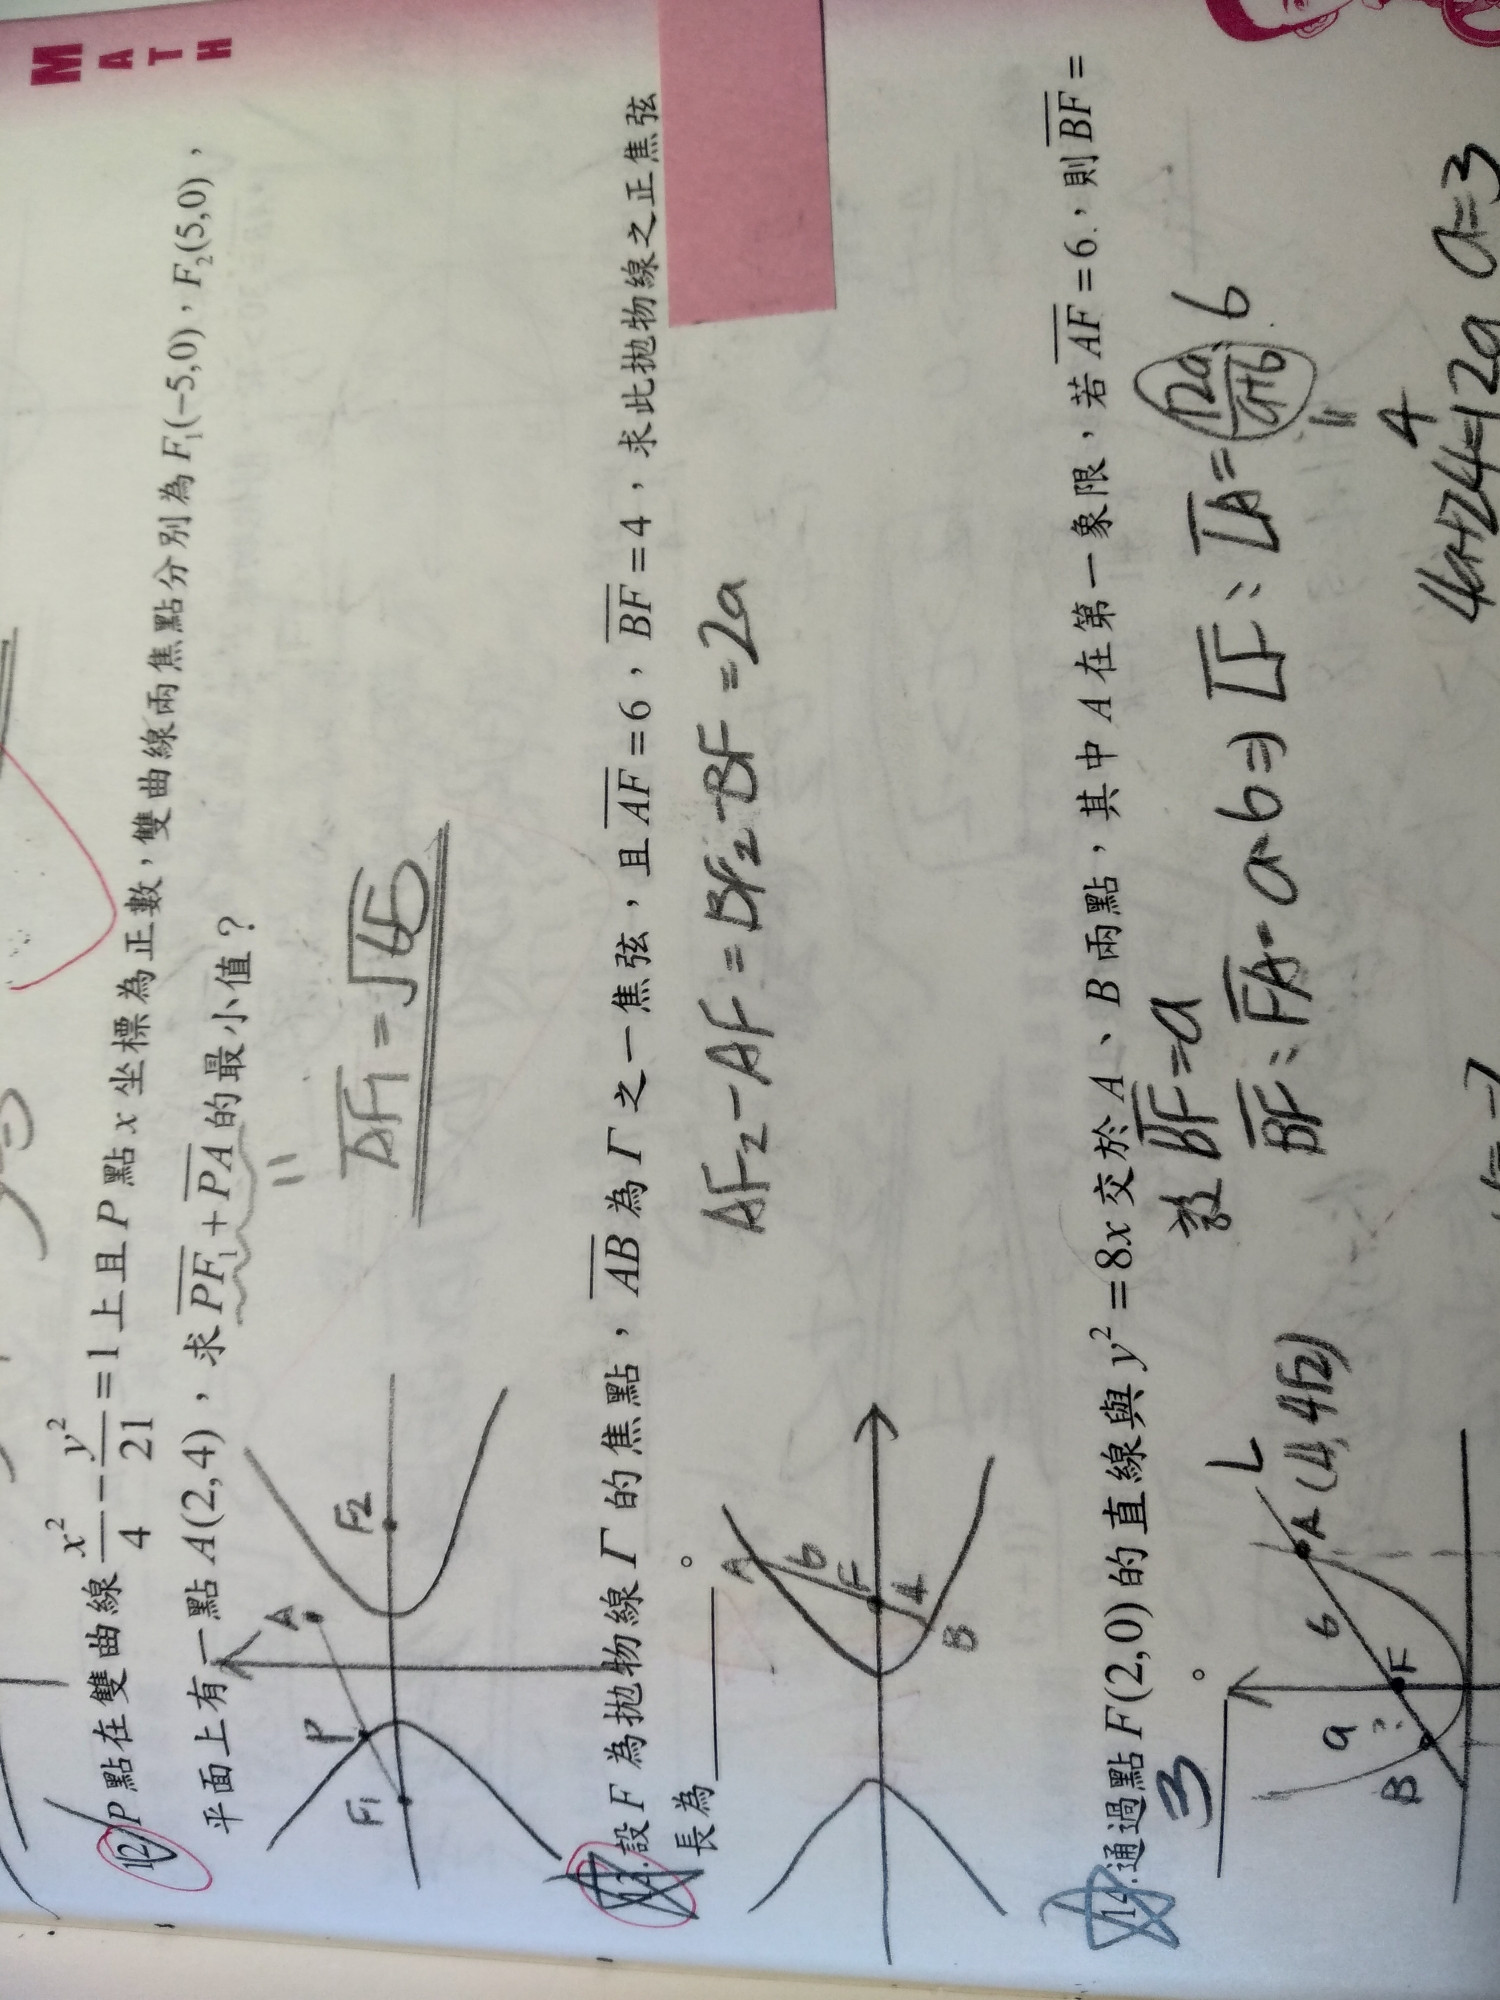 MATH
12. P 點在雙曲線 x²/4 − y²/21 = 1 上且 P 點 x 坐標為正數,雙曲線兩焦點分別為 F₁(−5,0),F₂(5,0),
平面上有一點 A(2,4),求 PF₁ + PA 的最小值?
AF₁ = √65
P
A
F₁
F₂
13. 設 F 為拋物線 Γ 的焦點,AB 為 Γ 之一焦弦,且 AF = 6,BF = 4,求此拋物線之正焦弦
長為 ______。
AF₂ − AF = BF₂ − BF = 2a
A
6
F
4
B
14. 通過點 F(2,0) 的直線與 y² = 8x 交於 A、B 兩點,其中 A 在第一象限,若 AF = 6,則 BF =
3 。
設 BF = a
BF : FA = a : 6 ⇒ LF : LA = 12a/a+6 : 6
4
4a+24=12a a=3
L
A (4, 4√2)
6
F
a
B